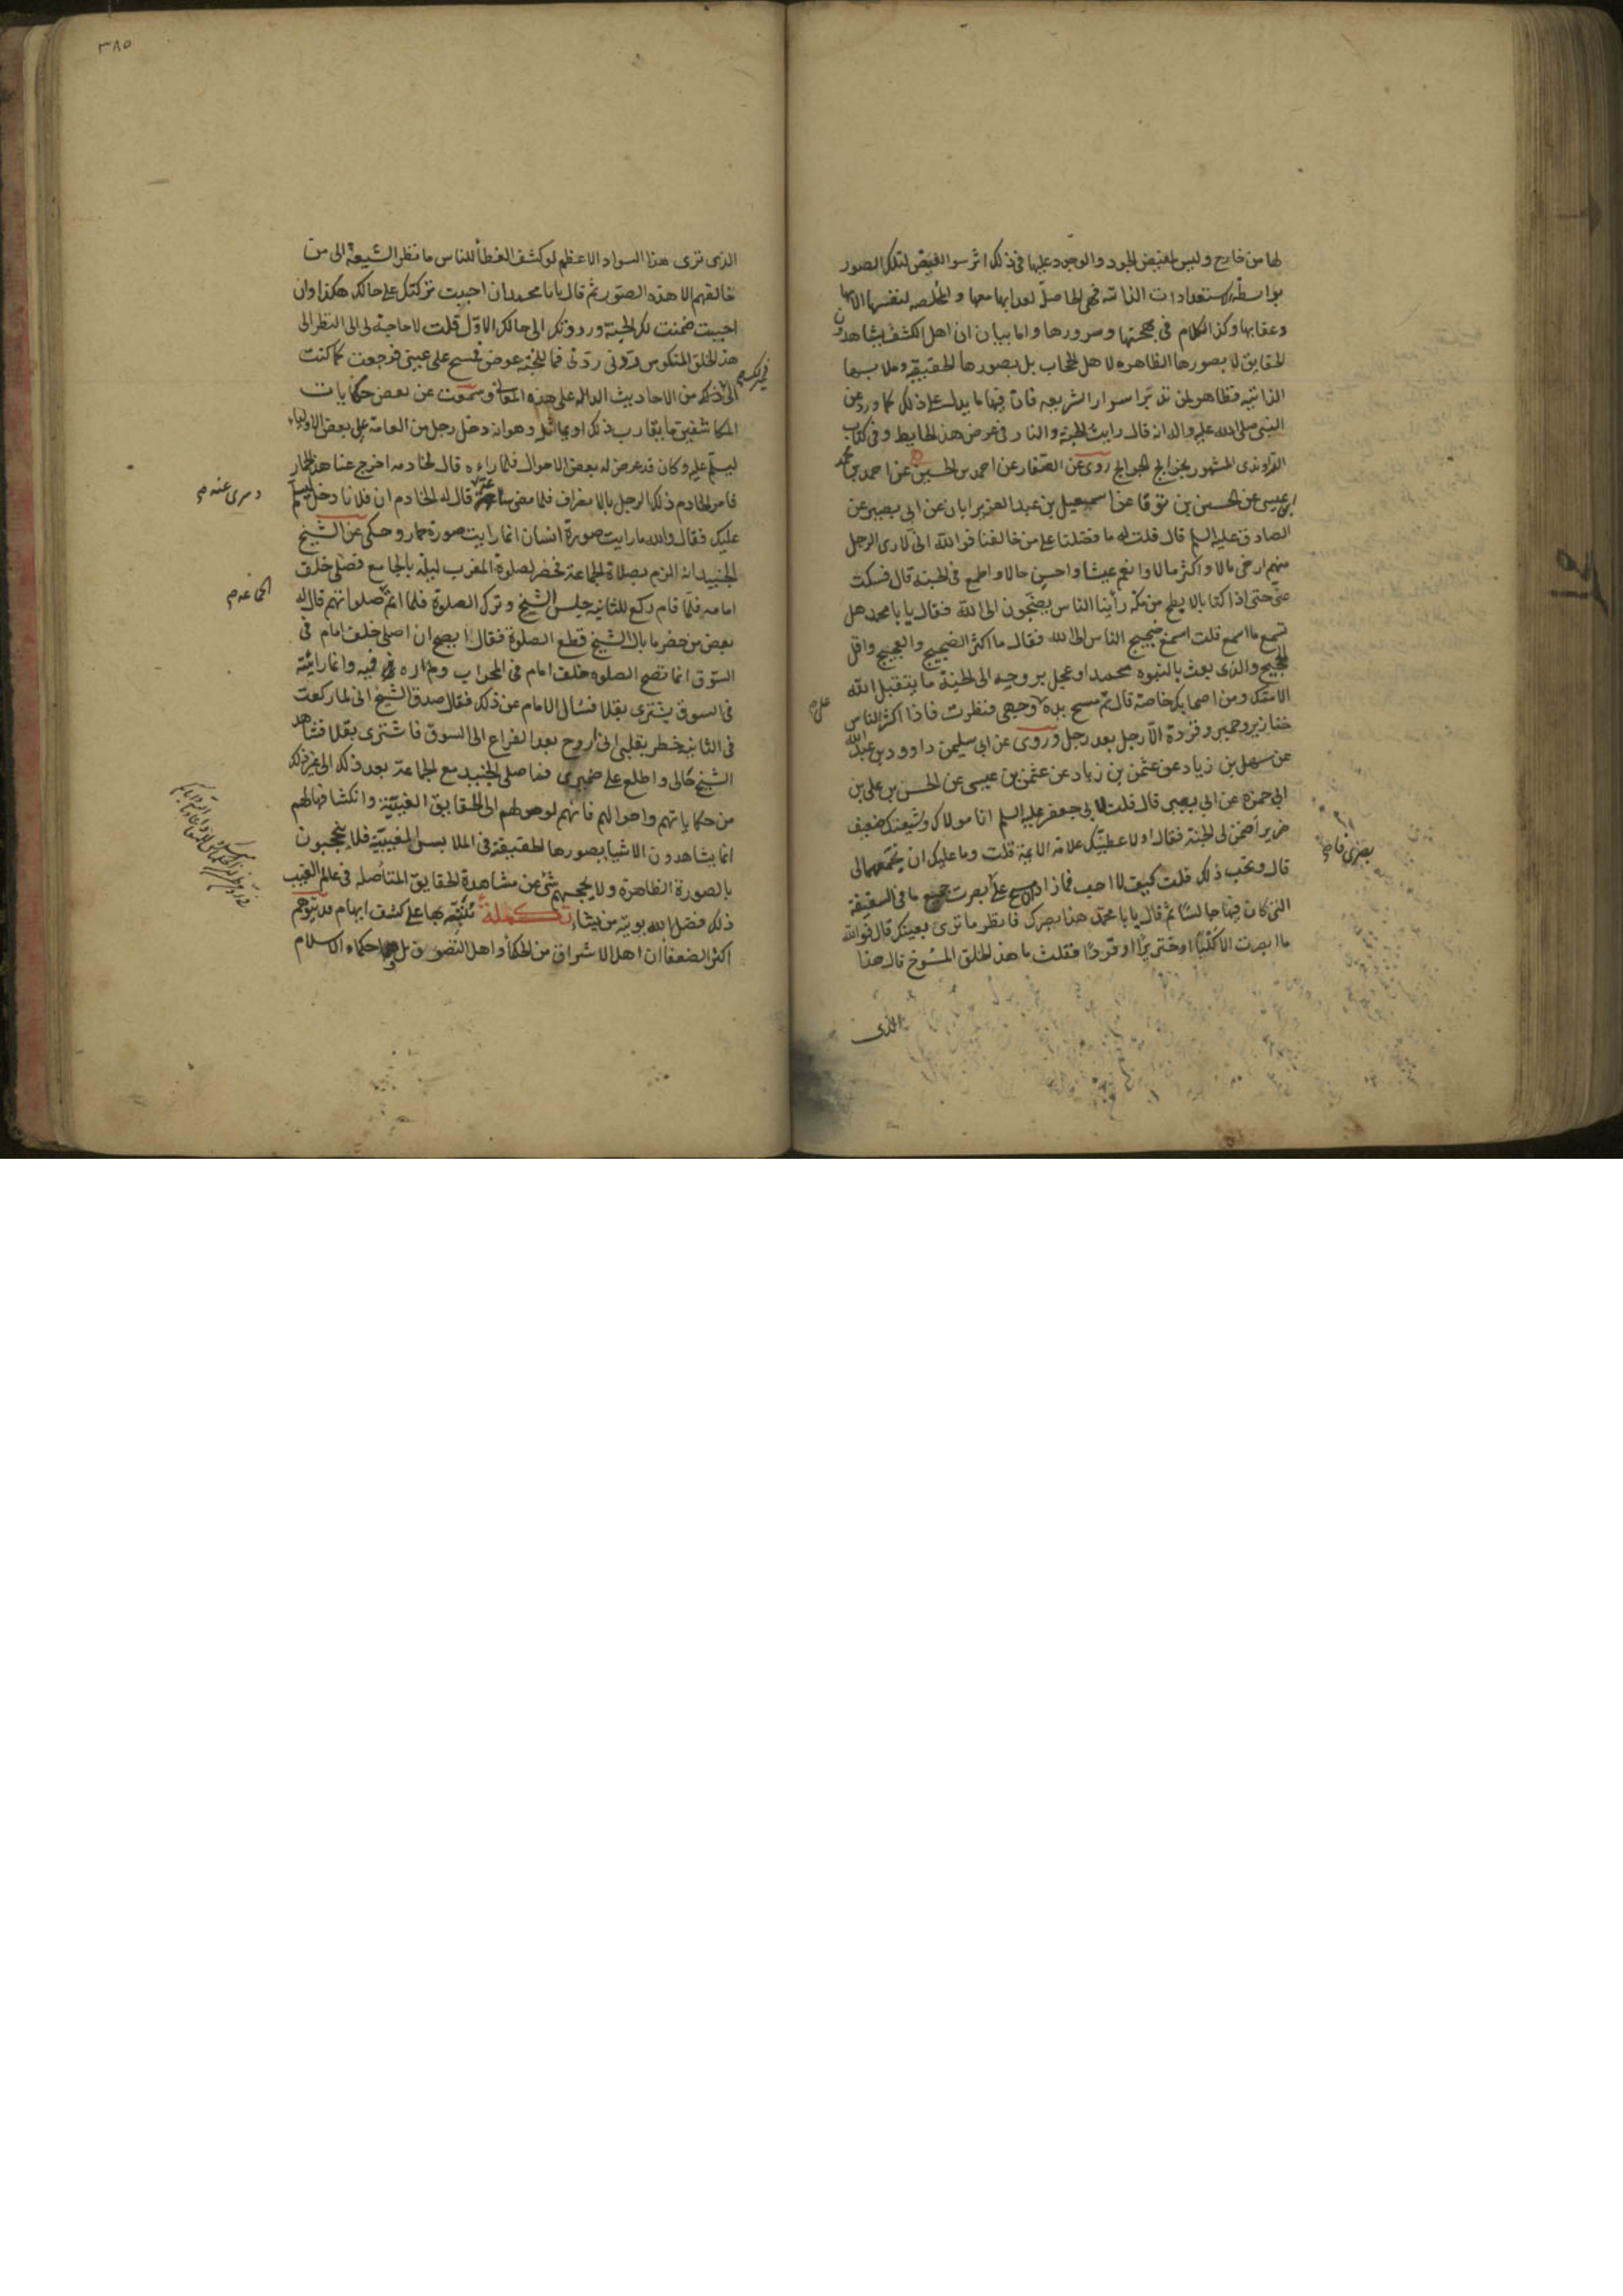 لها من خارج وليس لمفيض الجود والوجود عليها فى ذلك اثر سوا الفيض لتلك الصور
بواسطة استعدادات الذاتيه فهى الحاصل لعذابها معها و المخلصه لنفسها الآمها
وعقابها وكذا الكلام فى بهجتها وسرورها واما بيان ان اهل الكشف يشاهدون
الحقايق لا بصورها الظاهره لاهل الحجاب بل بصورها الحقيقيه وملابسها
الذاتيه فظاهر لمن تدبر اسرار الشريعه فان فيها ما يدل على ذلك كما ورد عن
النبى صلى الله عليه واله انه قال رايت الجنة والنار فى عرض هذا الحايط وفى كتاب
الراوندى المشهور بخرايج الجرايج روى عن الصفار عن احمد بن الحسين عن احمد بن محمد
بن عيسى عن الحسين بن عن اسمعيل بن عبد العزيز ابان عن ابى بصير عن
الصادق عليه السلم قال قلت له ما فضلنا على من خالفنا فوالله انى لارى الرجل
منهم ارخى بالا واكثر مالا وانعم عيشا واحسن حالا واطمع فى الجنة قال فسكت
عنى حتى اذا كنا بالابطح من مكة رأينا الناس يضجون الى الله فقال يا با محمد هل
تسمع ما اسمع قلت اسمع ضجيج الناس الى الله فقال ما اكثر الضجيج والعجيج واقل
الحجيج والذى بعث بالنبوه محمدا وعجل بروحه الى الجنة ما يتقبل الله
الا منك ومن اصحابك خاصة قال ثم مسح يده على وجهى ونظرت فاذا اكثر الناس
خنازير وحمير وقردة الا رجل بعد رجل وروى عن ابى سليمن داوود بن عبد الله
عن سهل بن زياد عن عثمن بن زياد عن عثمن بن عيسى عن الحسن بن على بن
ابى حمزه عن ابى بصير قال قلت لابى جعفر عليه السلم انا مولاك وشيعتك ضعيف
ضرير اضمن لى الجنة فقال اولا اعطيك علامة الائمة قلت وما عليك ان تجمعهما لى
قال وتحب ذلك قلت كيف لا احب فما زاد ان مسح على بصرى ابصرت جميع ما فى السقيفة
التى كان فيها جالسا ثم قال يا با محمد هذا بصرك فانظر ما ترى بعينك قال فوالله
ما ابصرت الا كلبا او خنزيرا او قردا فقلت ما هذا الخلق الممسوخ قال هذا
الذى
على
بصرى فاصر
٣٨٥
الذى ترى هذا السواد الاعظم لو كشف الغطأ للناس ما نظر الشيعة الى من
خالفهم الا هذه الصور ثم قال يا با محمد ان احببت تركتك على حالك هكذا وان
احببت ضمنت لك الجنة ورددتك الى حالك الاول قلت لا حاجة لى الى النظر الى
هذا الخلق المنكوس ردنى ردنى فما للجنة عوض فمسح على عينى فرجعت كما كنت
الى غير ذلك من الاحاديث الداله على هذه المعانى وسمعت عن بعض حكايات
المكاشفين ما يقارب ذلك او يماثل وهو انه دخل رجل من العامة على بعض الاولياء
ليسلم عليه وكان قد عرض له بعض الاحوال فلما راءه قال لخادمه اخرج عنا هذا الحمار
فامر الخادم ذلك الرجل بالانصراف فلما مضى ساعة قال له الخادم ان فلانا دخل ليسلم
عليك فقال والله ما رايت صورة انسان انما رايت صورة حمار وحكى عن الشيخ
الجنيد انه الزم بصلاة الجماعة فحضر لصلوة المغرب ليلة بالجامع فصلى خلف
امامه فلما قام ركع للثانيه جلس الشيخ وترك الصلوة فلما اتم صلواتهم قال له
بعض من حضر ما بال الشيخ قطع الصلوة فقال ايصح ان اصلى خلف امام فى
السوق انما تصح الصلوة خلف امام فى المحراب ولم اره فيه وانما رائيته
فى السوق يشترى بقلا فسأل الامام عن ذلك فقال صدق الشيخ انى لما ركعت
فى الثانيه خطر بقلبى انى اروح بعد الفراغ الى السوق فاشترى بقلا فشاهد
الشيخ حالى واطلع على ضميرى فما صلى الجنيد مع الجماعة بعد ذلك الى غير ذلك
من حكاياتهم واحوالهم فانهم لوصولهم الى الحقايق الغيبية وانكشافها لهم
انما يشاهدون الاشيا بصورها الحقيقية فى الملابس الغيبية فلا يحتجبون
بالصورة الظاهرة ولا يحجبهم شئ عن مشاهدة الحقايق المتأصله فى عالم الغيب
ذلك فضل الله يوتيه من يشاء تكملة ننبه بها على كشف ابهام قد يتوهم
اكثر الضعفا ان اهل الاشراق من الحكمأ واهل التصوف بل وحكماء الاسلام
الجماعه